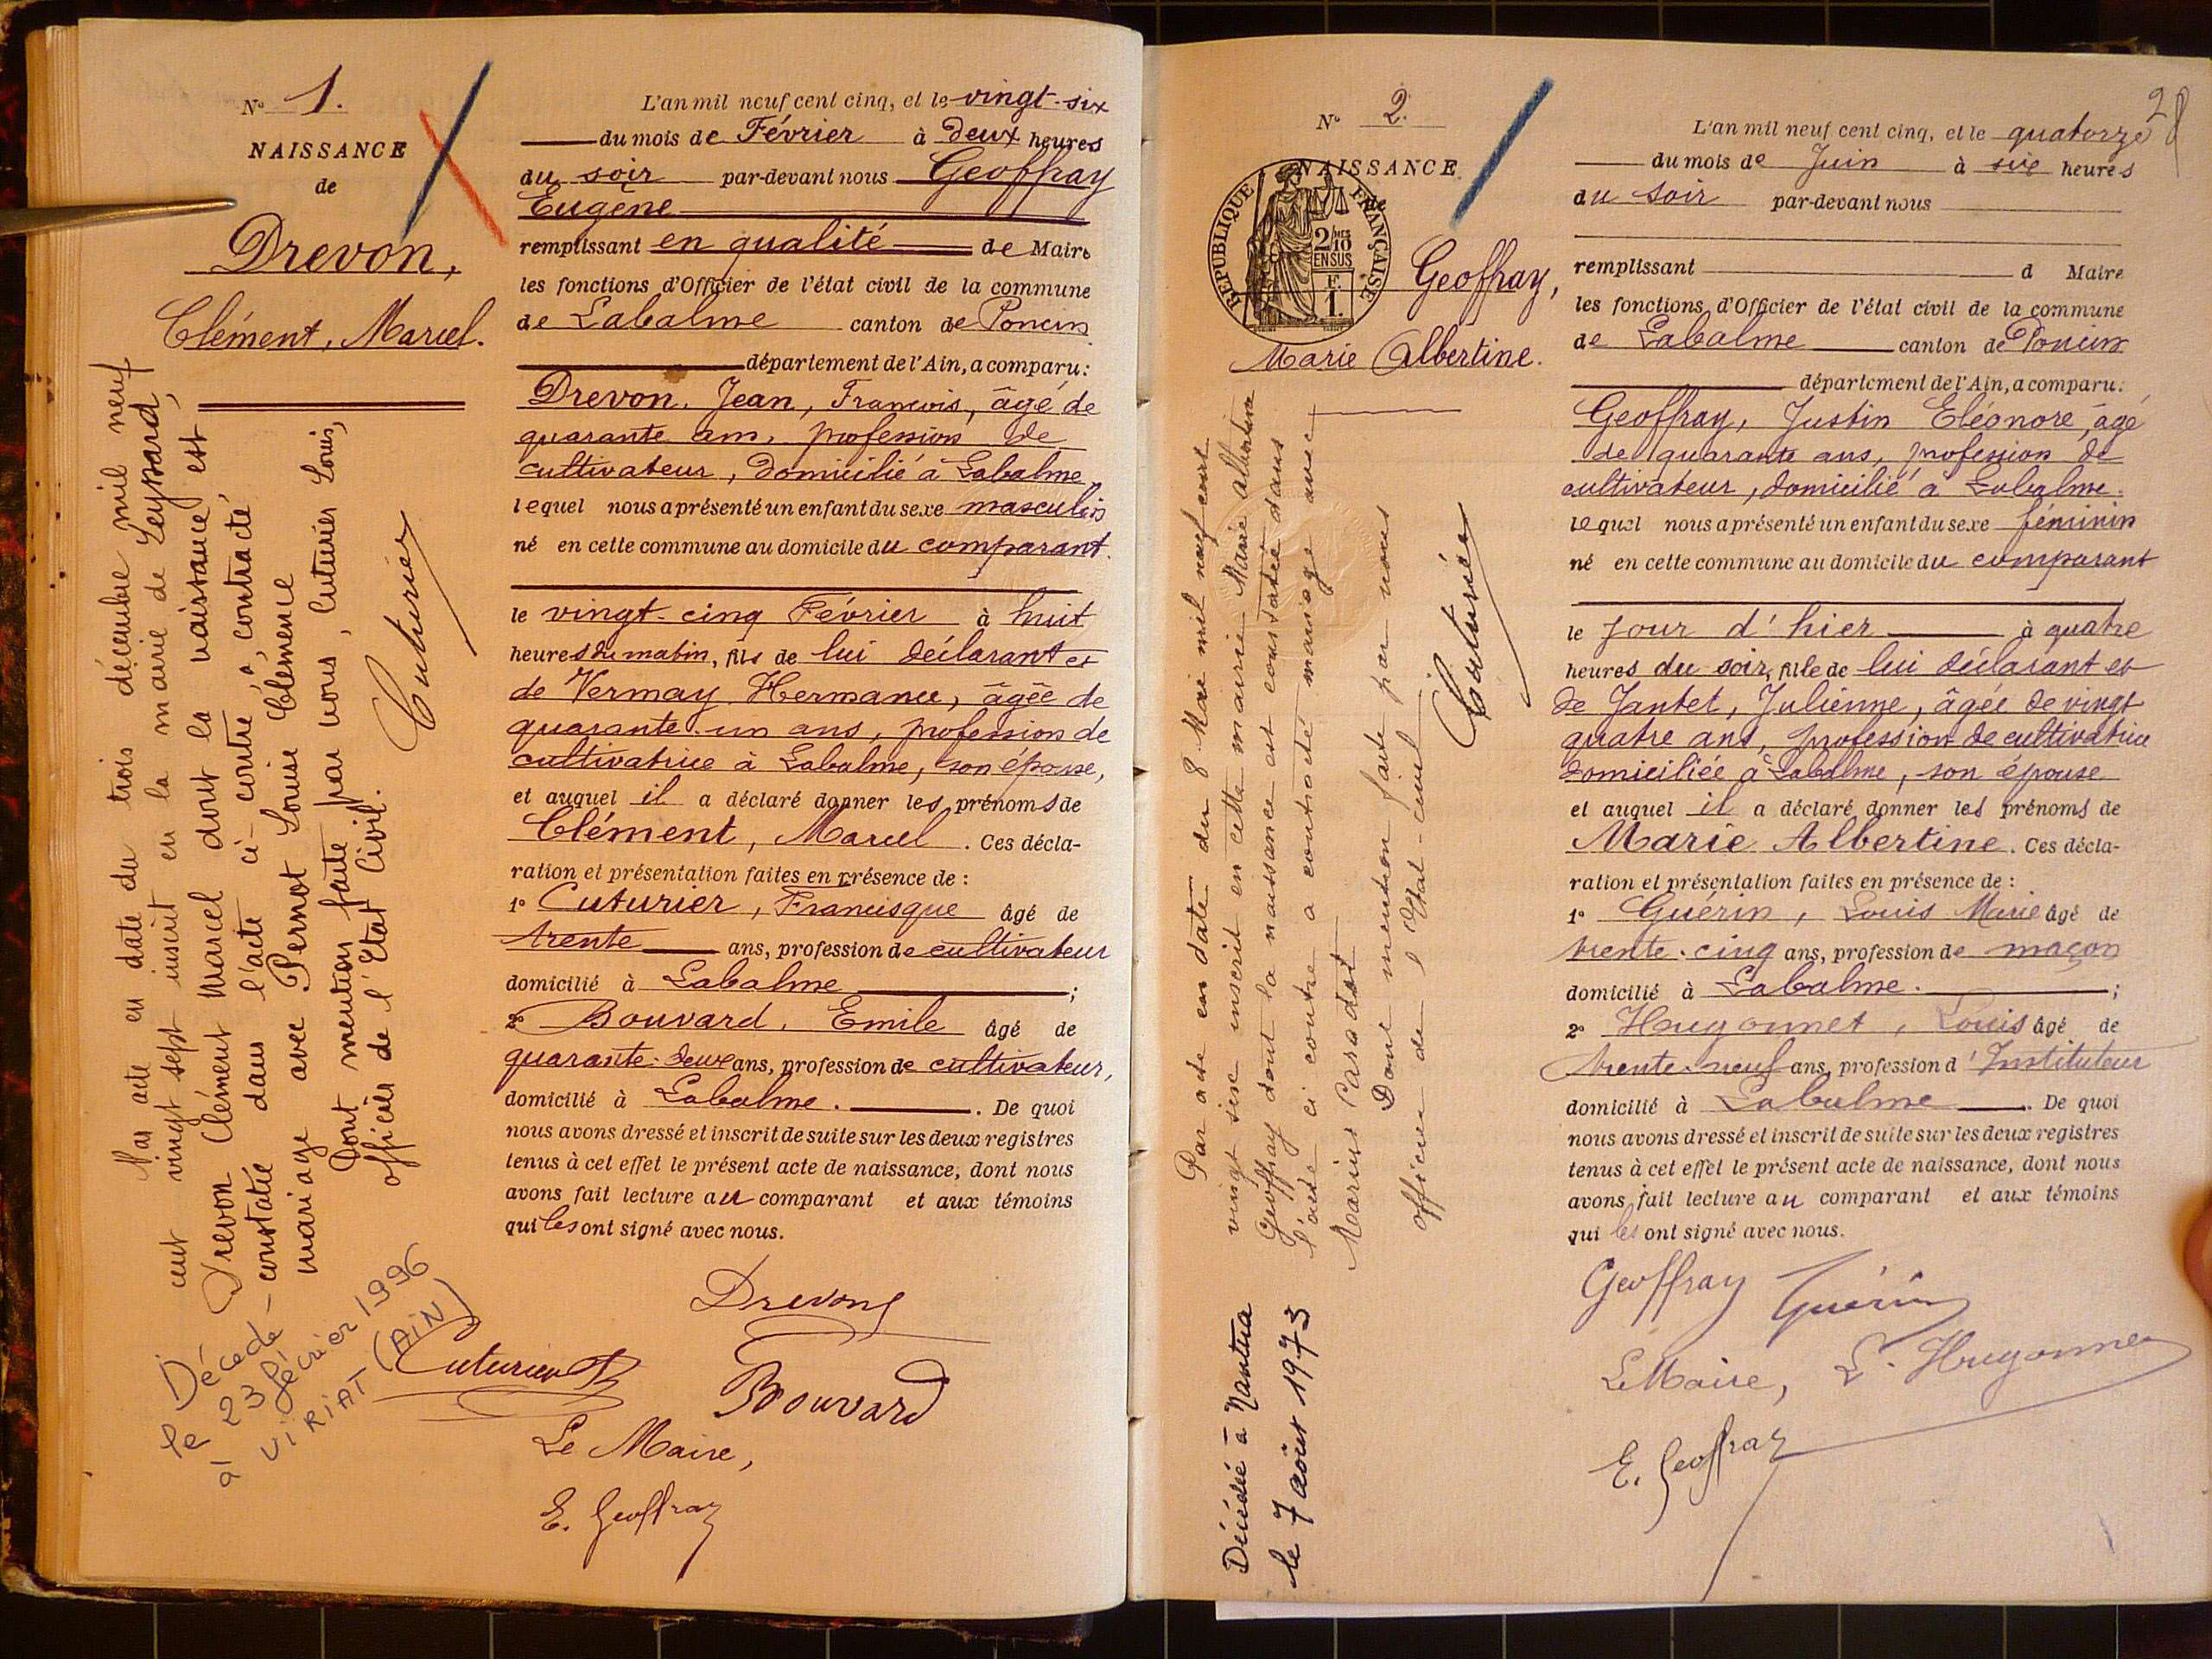 N° 1.
NAISSANCE
de
Drevon,
Clément, Marcel.
Par acte en date du trois décembre mil neuf
cent vingt sept inscrit en la mairie de Leyssard,
Drevon Clément Marcel dont la naissance est
constatée dans l'acte ci-contre, a contracté
mariage avec Pernot Louise Clémence
Dont mention faite par nous, Cuturier Louis,
officier de l'Etat Civil.
Cuturier
Décédé
le 23 février 1996
à VIRIAT (AIN)
L'an mil neuf cent cinq, et le vingt-six
du mois de Février à deux heures
du soir par-devant nous Geoffray
Eugène
remplissant en qualité de Maire
les fonctions d'Officier de l'état civil de la commune
de Labalme canton de Poncin
département de l'Ain, a comparu:
Drevon, Jean, François, âgé de
quarante ans, profession de
cultivateur, domicilié à Labalme
lequel nous a présenté un enfant du sexe masculin
né en cette commune au domicile du comparant.
le vingt-cinq Février à huit
heures du matin, fils de lui déclarant et
de Vermay Hermance, âgée de
quarante-un ans, profession de
cultivatrice à Labalme, son épouse,
et auquel il a déclaré donner les prénoms de
Clément, Marcel. Ces décla-
ration et présentation faites en présence de :
1° Cuturier, Francisque âgé de
trente ans, profession de cultivateur
domicilié à Labalme ;
2° Bouvard, Emile âgé de
quarante-deux ans, profession de cultivateur,
domicilié à Labalme. . De quoi
nous avons dressé et inscrit de suite sur les deux registres
tenus à cet effet le présent acte de naissance, dont nous
avons fait lecture au comparant et aux témoins
qui les ont signé avec nous.
Drevon
Cuturier F
Bouvard
Le Maire,
E. Geoffray
28
N° 2.
NAISSANCE
de
REPUBLIQUE FRANÇAISE
2/10 EN SUS
F. 1.
Geoffray,
Marie Albertine.
Par acte en date du 8 Mai mil neuf cent
vingt six inscrit en cette mairie Marie Albertine
Geoffray dont la naissance est constatée dans
l'acte ci contre a contracté mariage avec
Marius Paradot
Dont mention faite par nous
officier de l'Etat-civil
Cuturier
Décédée à Nantua
le 7 août 1973
L'an mil neuf cent cinq, et le quatorze
du mois de Juin à six heures
du soir par-devant nous
remplissant d Maire
les fonctions d'Officier de l'état civil de la commune
de Labalme canton de Poncin
département de l'Ain, a comparu:
Geoffray, Justin Eléonore, âgé
de quarante ans, profession de
cultivateur, domicilié à Labalme.
lequel nous a présenté un enfant du sexe féminin
né en cette commune au domicile du comparant
le jour d'hier à quatre
heures du soir, fille de lui déclarant et
de Jantet, Julienne, âgée de vingt
quatre ans, profession de cultivatrice
domiciliée à Labalme, son épouse
et auquel il a déclaré donner les prénoms de
Marie Albertine. Ces décla-
ration et présentation faites en présence de :
1° Guérin, Louis Marie âgé de
trente-cinq ans, profession de maçon
domicilié à Labalme. ;
2° Hugonnet, Louis âgé de
trente-neuf ans, profession d'Instituteur
domicilié à Labalme . De quoi
nous avons dressé et inscrit de suite sur les deux registres
tenus à cet effet le présent acte de naissance, dont nous
avons fait lecture au comparant et aux témoins
qui les ont signé avec nous.
Geoffray Guérin
Le Maire, L. Hugonnet
E. Geoffray